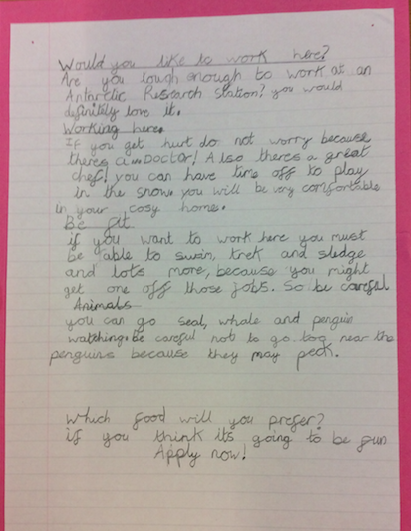 Would you like to work here?
Are you tough enough to work at an
Antarctic Research Station? you would
definitely love it.
Working here.
If you get hurt do not worry because
theres a Doctor! Also theres a great
chef! you can have time off to play
in the snow. you will be very comfortable
in your cosy home.
Be fit
if you want to work here you must
be able to swim, trek and sledge
and lots more, because you might
get one off those jobs. So be careful
Animals
you can go seal, whale and penguin
watching. be careful not to go too near the
penguins because they may peck.
Which food will you prefer?
if you think its going to be fun
Apply now!